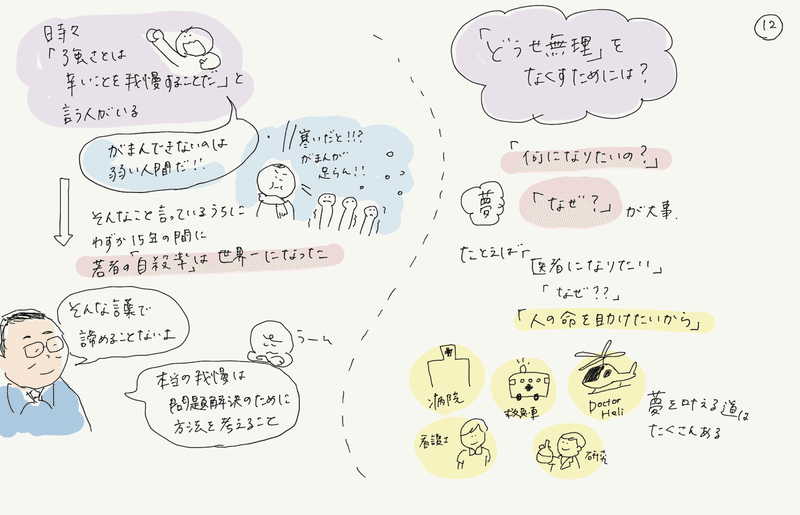 12
時々
「強さとは
辛いことを我慢することだ」と
言う人がいる
がまんできないのは
弱い人間だ!!
寒いだと!!?
がまんが
足らん!!
そんなこと言っているうちに
わずか15年の間に
若者の「自殺率」は世界一になった
そんな言葉で
諦めることないよ
うーん
本当の我慢は
問題解決のために
方法を考えること
「どうせ無理」を
なくすためには?
「何になりたいの?」
夢
「なぜ?」が大事.
たとえば
「医者になりたい」
「なぜ??」
「人の命を助けたいから」
病院
救急車
Doctor
Heli
看護士
研究
夢を叶える道は
たくさんある